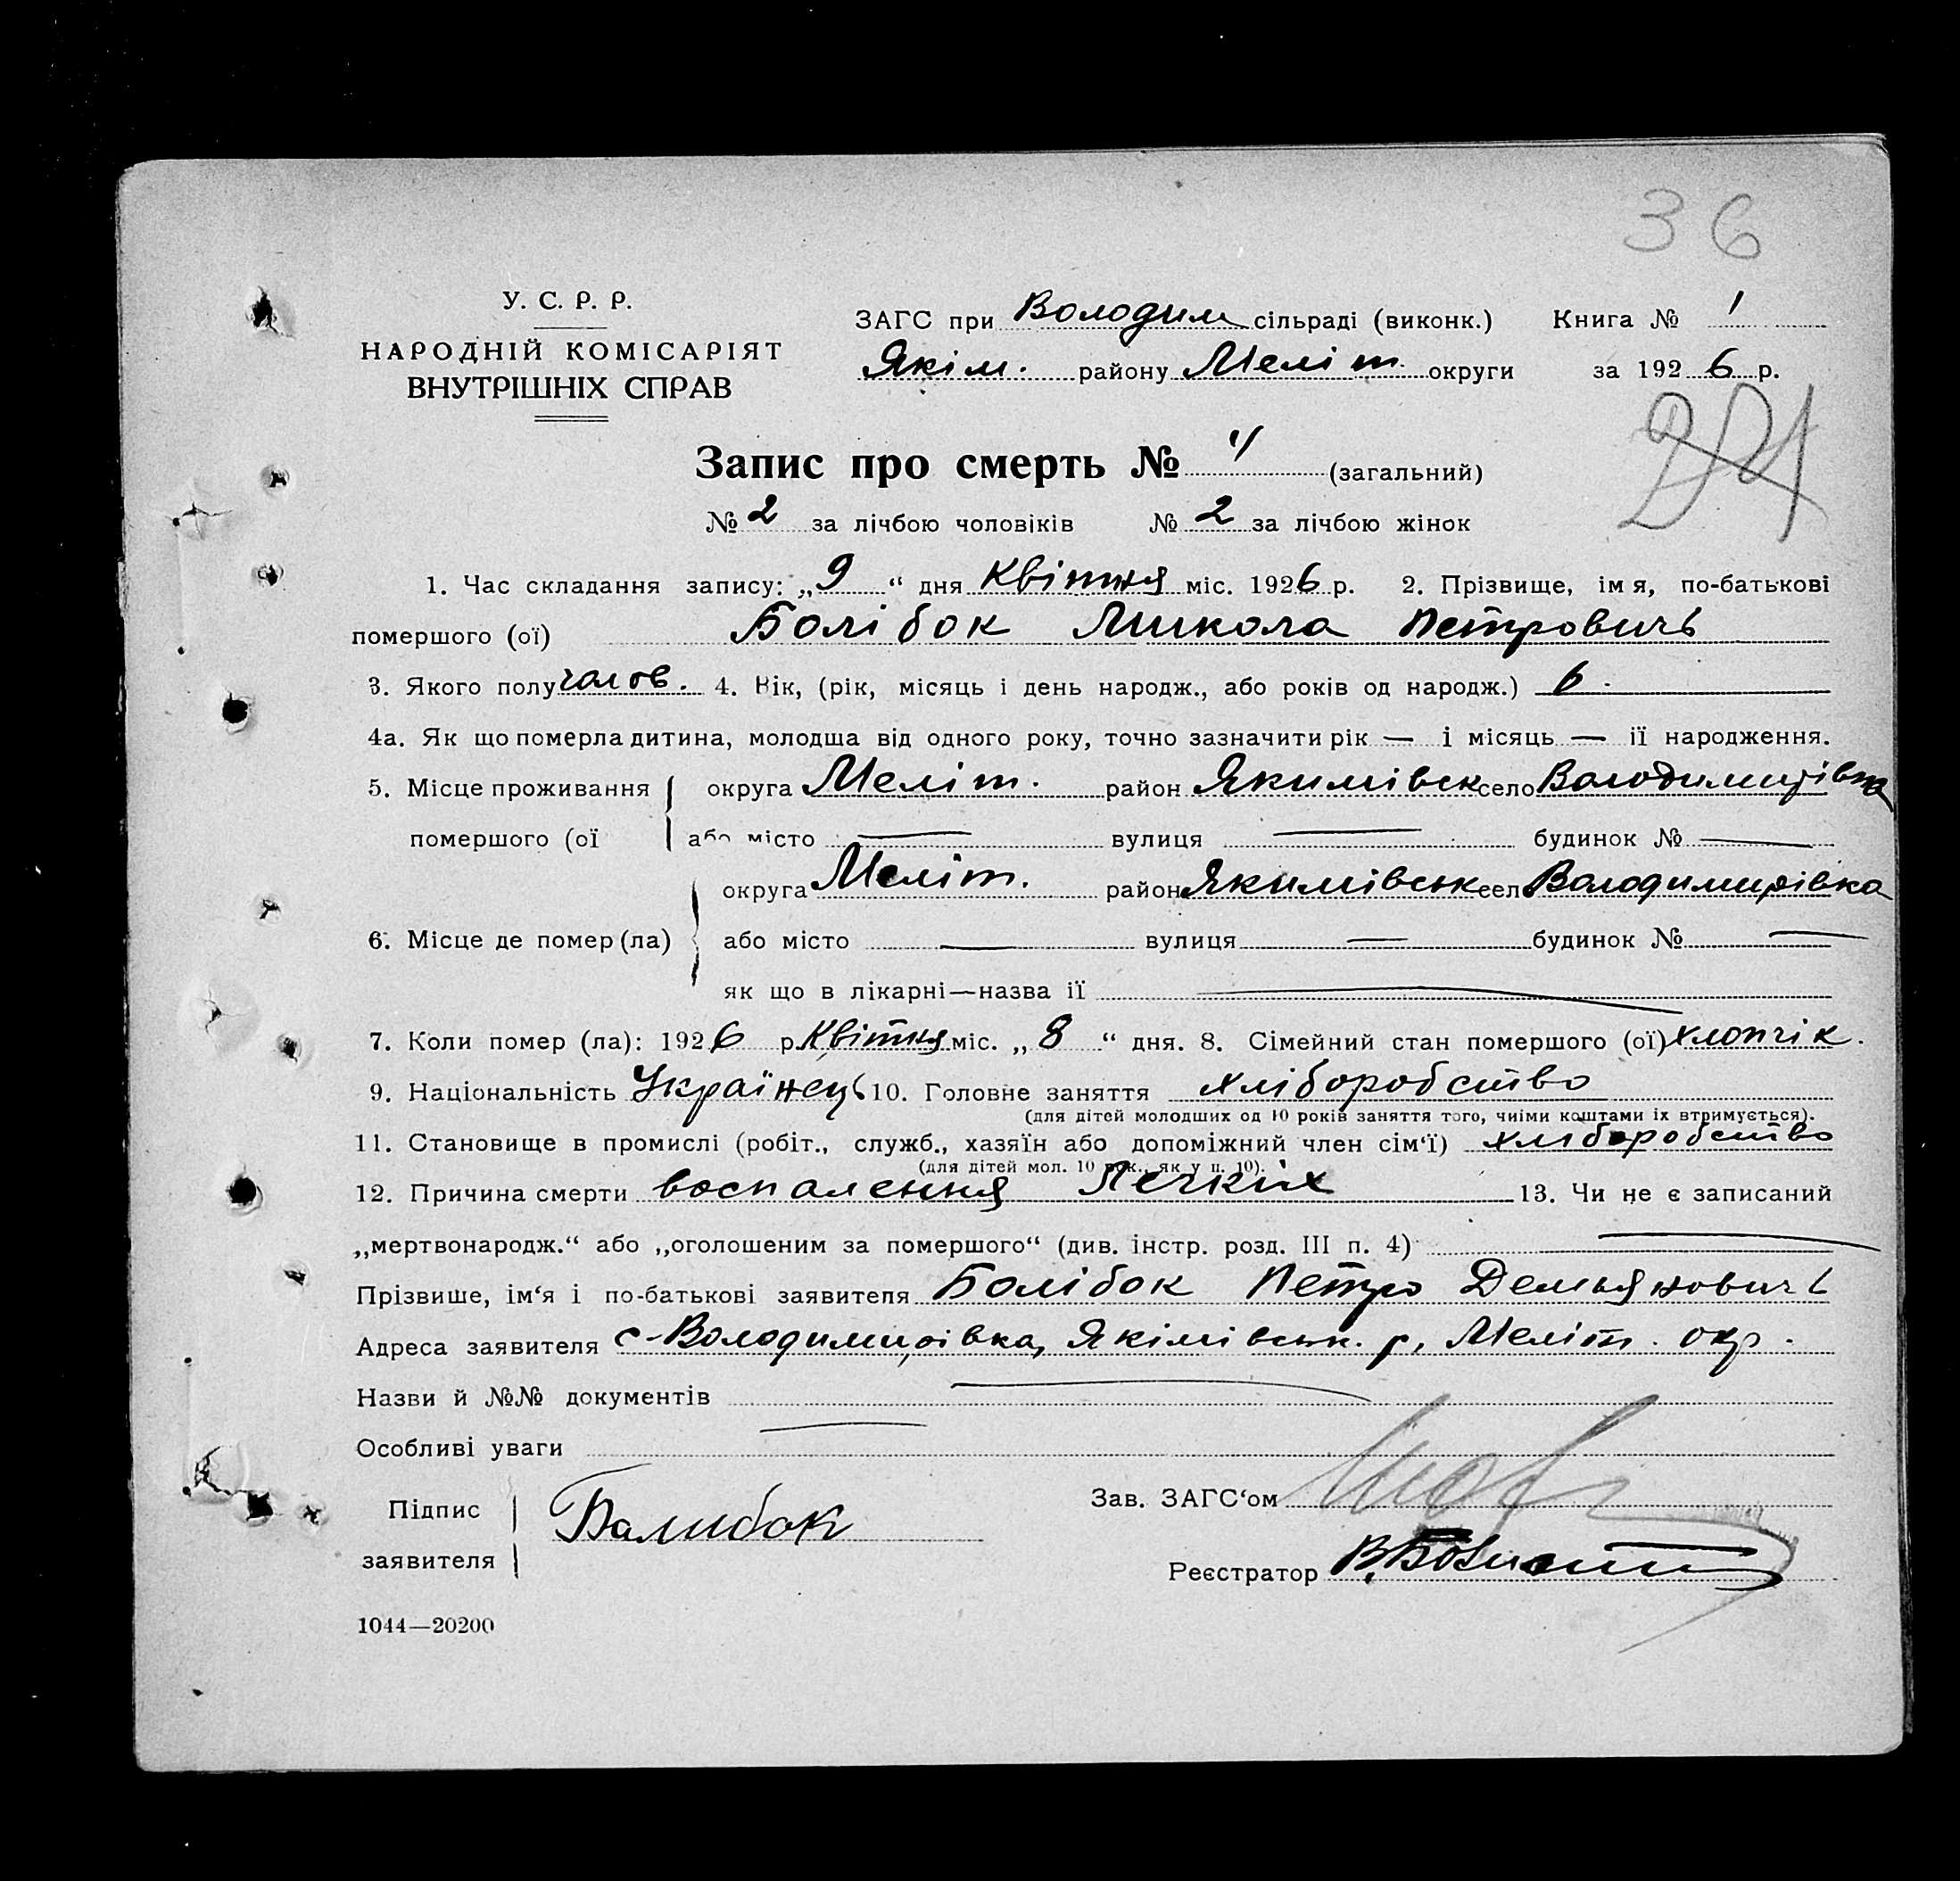 36
У. С. Р. Р.
НАРОДНІЙ КОМІСАРІЯТ
ВНУТРІШНІХ СПРАВ
ЗАГС при Володим сільраді (виконк.) Книга № 1
Якім. району Меліт. округи за 1926 р.
Запис про смерть № 4 (загальний)
№ 2 за лічбою чоловіків № 2 за лічбою жінок
1. Час складання запису: „9“ дня Квітня міс. 1926 р. 2. Прізвище, імя, по-батькові
помершого (ої) Болібок Микола Петровичь
3. Якого полу чолов. 4. Вік, (рік, місяць і день народж., або років од народж.) 6.
4а. Як що померла дитина, молодша від одного року, точно зазначити рік — і місяць — ії народження.
5. Місце проживання округа Меліт. район Якимівск село Володимирівка
помершого (ої або місто — вулиця — будинок № —
округа Меліт. район Якимівськ село Володимирівка
6. Місце де помер (ла) або місто — вулиця — будинок № —
як що в лікарні—назва ії —
7. Коли помер (ла): 1926 р. Квітня міс. „8“ дня. 8. Сімейний стан помершого (ої) хлопчік.
9. Національність Українець 10. Головне заняття хліборобство
(для дітей молодших од 10 років заняття того, чиїми коштами їх втримується).
11. Становище в промислі (робіт., служб., хазяїн або допоміжний член сім‘ї) хліборобство
(для дітей мол. 10 рок., як у п. 10).
12. Причина смерти воспалення Легкіх 13. Чи не є записаний
„мертвонародж.“ або „оголошеним за помершого“ (див. інстр. розд. III п. 4) —
Прізвише, ім‘я і по-батькові заявителя Болібок Петро Демьяновичь
Адреса заявителя с-Володимирівка, Якімівськ. р, Меліт. окр.
Назви й №№ документів —
Особливі уваги —
Підпис
заявителя Балибок
Зав. ЗАГС‘ом
Реєстратор
1044—20200